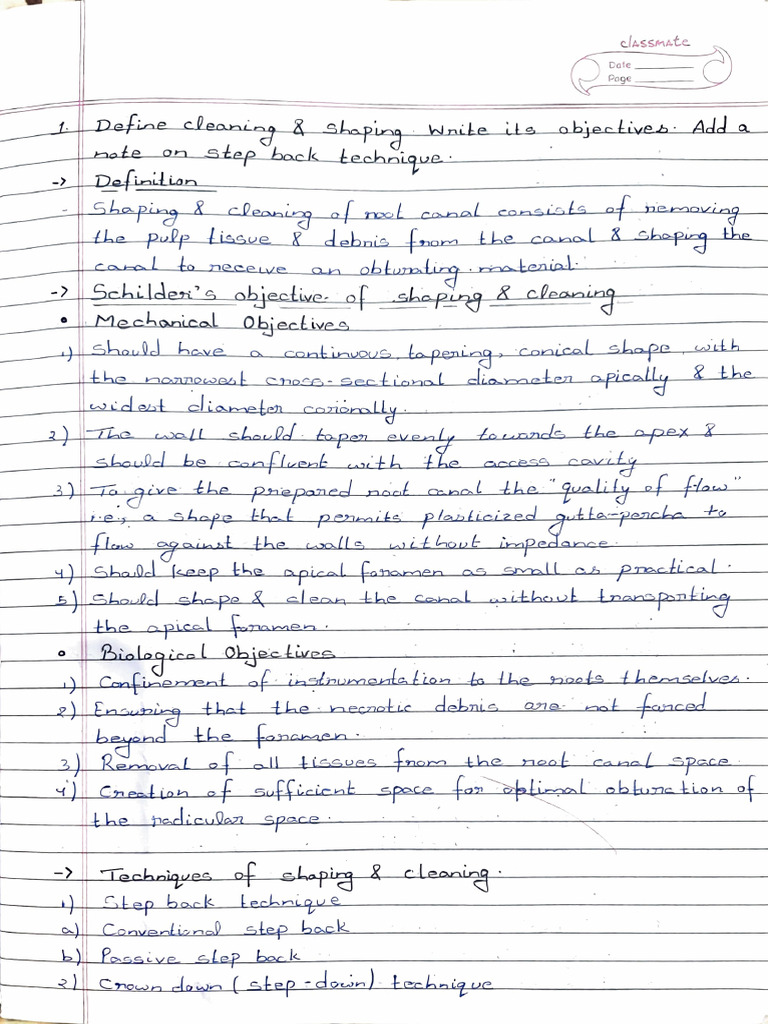 classmate
Date
Page
1. Define cleaning & shaping. Write its objectives. Add a
note on step back technique.
-> Definition
- Shaping & cleaning of root canal consists of removing
the pulp tissue & debris from the canal & shaping the
canal to receive an obturating material.
-> Schilder's objective of shaping & cleaning
• Mechanical Objectives
1) Should have a continuous, tapering, conical shape, with
the narrowest cross-sectional diameter apically & the
widest diameter coronally.
2) The wall should taper evenly towards the apex &
should be confluent with the access cavity
3) To give the prepared root canal the "quality of flow"
i.e., a shape that permits plasticized gutta-percha to
flow against the walls without impedance.
4) Should keep the apical foramen as small as practical.
5) Should shape & clean the canal without transporting
the apical foramen.
• Biological Objectives
1) Confinement of instrumentation to the roots themselves.
2) Ensuring that the necrotic debris are not forced
beyond the foramen.
3) Removal of all tissues from the root canal space
4) Creation of sufficient space for optimal obturation of
the radicular space.
-> Techniques of shaping & cleaning.
1) Step back technique
a) Conventional step back
b) Passive step back
2) Crown down (step-down) technique